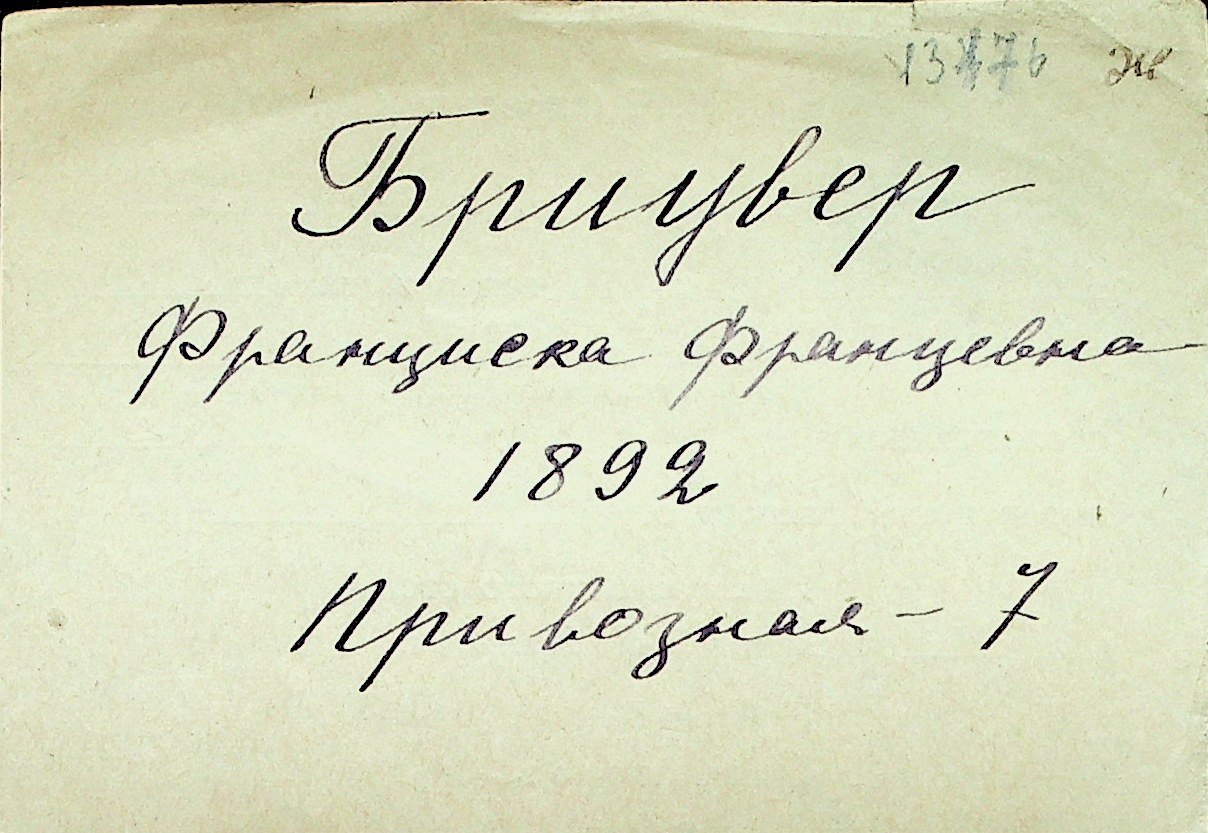 Бриувер
Франциска Францевна
1892
Привозная - 7